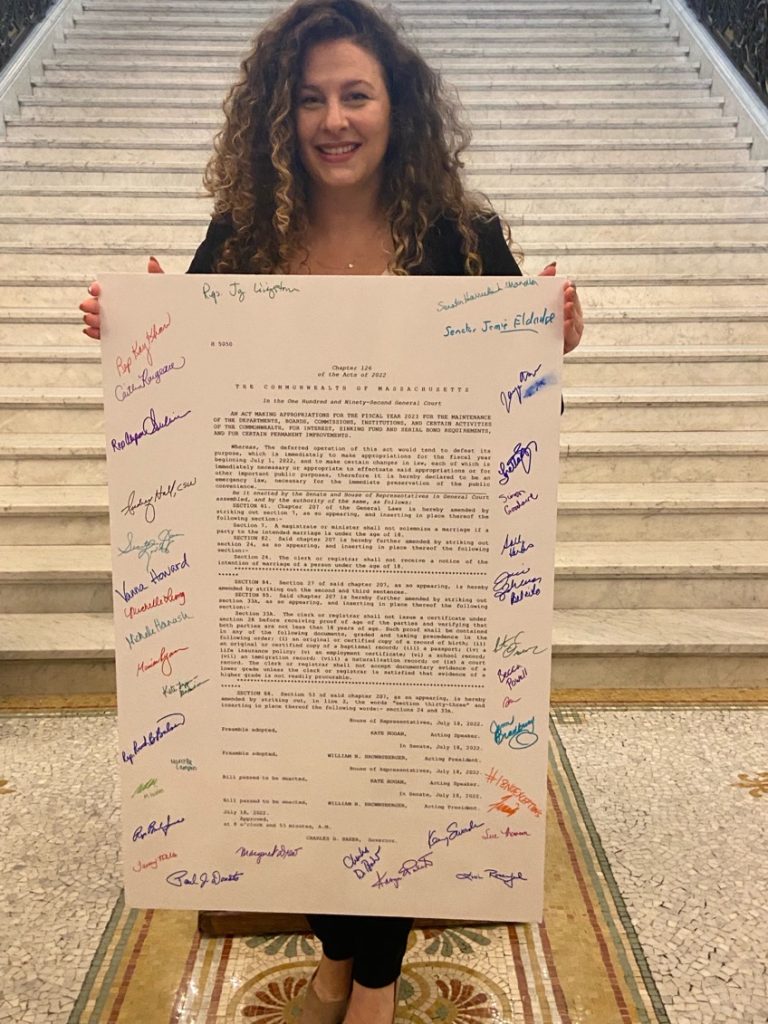 Rep. Jay Livingstone
Senator Harriette L. Chandler
Senator Jamie Eldridge
Rep Kay Khan
H 5050
Chapter 126
of the Acts of 2022
THE COMMONWEALTH OF MASSACHUSETTS
In the One Hundred and Ninety-Second General Court
AN ACT MAKING APPROPRIATIONS FOR THE FISCAL YEAR 2023 FOR THE MAINTENANCE
OF THE DEPARTMENTS, BOARDS, COMMISSIONS, INSTITUTIONS, AND CERTAIN ACTIVITIES
OF THE COMMONWEALTH, FOR INTEREST, SINKING FUND AND SERIAL BOND REQUIREMENTS,
AND FOR CERTAIN PERMANENT IMPROVEMENTS.
Whereas, The deferred operation of this act would tend to defeat its
purpose, which is immediately to make appropriations for the fiscal year
beginning July 1, 2022, and to make certain changes in law, each of which is
immediately necessary or appropriate to effectuate said appropriations or for
other important public purposes, therefore it is hereby declared to be an
emergency law, necessary for the immediate preservation of the public
convenience.
Be it enacted by the Senate and House of Representatives in General Court
assembled, and by the authority of the same, as follows:
SECTION 81. Chapter 207 of the General Laws is hereby amended by
striking out section 7, as so appearing, and inserting in place thereof the
following section:-
Section 7. A magistrate or minister shall not solemnize a marriage if a
party to the intended marriage is under the age of 18.
SECTION 82. Said chapter 207 is hereby further amended by striking out
section 24, as so appearing, and inserting in place thereof the following
section:-
Section 24. The clerk or registrar shall not receive a notice of the
intention of marriage of a person under the age of 18.
SECTION 84. Section 27 of said chapter 207, as so appearing, is hereby
amended by striking out the second and third sentences.
SECTION 85. Said chapter 207 is hereby further amended by striking out
section 33A, as so appearing, and inserting in place thereof the following
section:-
Section 33A. The clerk or registrar shall not issue a certificate under
section 28 before receiving proof of age of the parties and verifying that
both parties are not less than 18 years of age. Such proof shall be contained
in any of the following documents, graded and taking precedence in the
following order: (i) an original or certified copy of a record of birth; (ii)
an original or certified copy of a baptismal record; (iii) a passport; (iv) a
life insurance policy; (v) an employment certificate; (vi) a school record;
(vii) an immigration record; (viii) a naturalization record; or (ix) a court
record. The clerk or registrar shall not accept documentary evidence of a
lower grade unless the clerk or registrar is satisfied that evidence of a
higher grade is not readily procurable.
SECTION 88. Section 53 of said chapter 207, as so appearing, is hereby
amended by striking out, in line 2, the words "section thirty-three" and
inserting in place thereof the following words:- sections 24 and 33A.
House of Representatives, July 18, 2022.
Preamble adopted, KATE HOGAN, Acting Speaker.
In Senate, July 18, 2022.
Preamble adopted, WILLIAM N. BROWNSBERGER, Acting President.
House of Representatives, July 18, 2022.
Bill passed to be enacted, KATE HOGAN, Acting Speaker.
In Senate, July 18, 2022.
Bill passed to be enacted, WILLIAM N. BROWNSBERGER, Acting President.
July 18, 2022.
Approved,
at 8 o'clock and 55 minutes, A.M.
CHARLES D. BAKER, Governor.
Audrey Hall, CSW
Vanna Howard
Sally
Becca
Powell
Jenn
Bradbury
#18NOEXCEPTIONS
Margaret Drew
Charles
D Baker